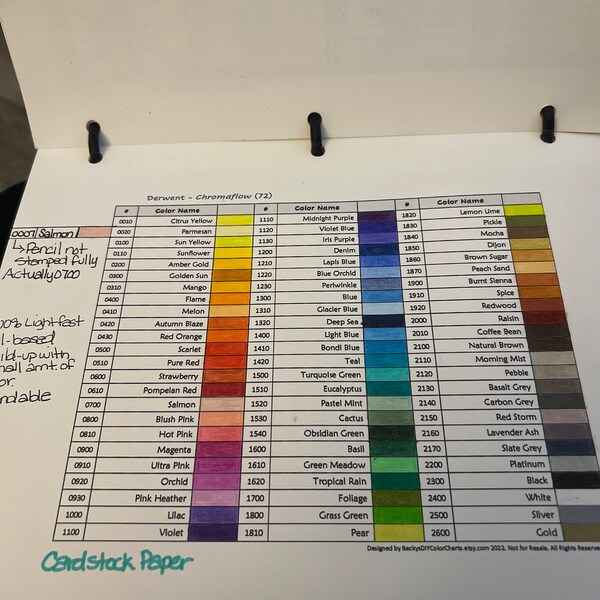 Derwent - Chromaflow (72)
# Color Name # Color Name # Color Name
0010 Citrus Yellow 1110 Midnight Purple 1820 Lemon Lime
0020 Parmesan 1120 Violet Blue 1830 Pickle
0100 Sun Yellow 1130 Iris Purple 1840 Mocha
0110 Sunflower 1200 Denim 1850 Dijon
0200 Amber Gold 1210 Lapis Blue 1860 Brown Sugar
0300 Golden Sun 1220 Blue Orchid 1870 Peach Sand
0310 Mango 1230 Periwinkle 1900 Burnt Sienna
0400 Flame 1300 Blue 1910 Spice
0410 Melon 1310 Glacier Blue 1920 Redwood
0420 Autumn Blaze 1320 Deep Sea 2000 Raisin
0430 Red Orange 1400 Light Blue 2010 Coffee Bean
0500 Scarlet 1410 Bondi Blue 2100 Natural Brown
0510 Pure Red 1420 Teal 2110 Morning Mist
0600 Strawberry 1500 Turquoise Green 2120 Pebble
0610 Pompeian Red 1510 Eucalyptus 2130 Basalt Grey
0700 Salmon 1520 Pastel Mint 2140 Carbon Grey
0800 Blush Pink 1530 Cactus 2150 Red Storm
0810 Hot Pink 1540 Obsidian Green 2160 Lavender Ash
0900 Magenta 1600 Basil 2170 Slate Grey
0910 Ultra Pink 1610 Green Meadow 2200 Platinum
0920 Orchid 1620 Tropical Rain 2300 Black
0930 Pink Heather 1700 Foliage 2400 White
1000 Lilac 1800 Grass Green 2500 Silver
1100 Violet 1810 Pear 2600 Gold
Designed by BeckysDIYColorCharts.etsy.com 2022. Not for Resale. All Rights Reserve
0007 Salmon
↳ Pencil not
stamped fully
Actually 0700
00% Lightfast
l-based
ild-up with
mall amt. of
or.
ndable
Cardstock Paper